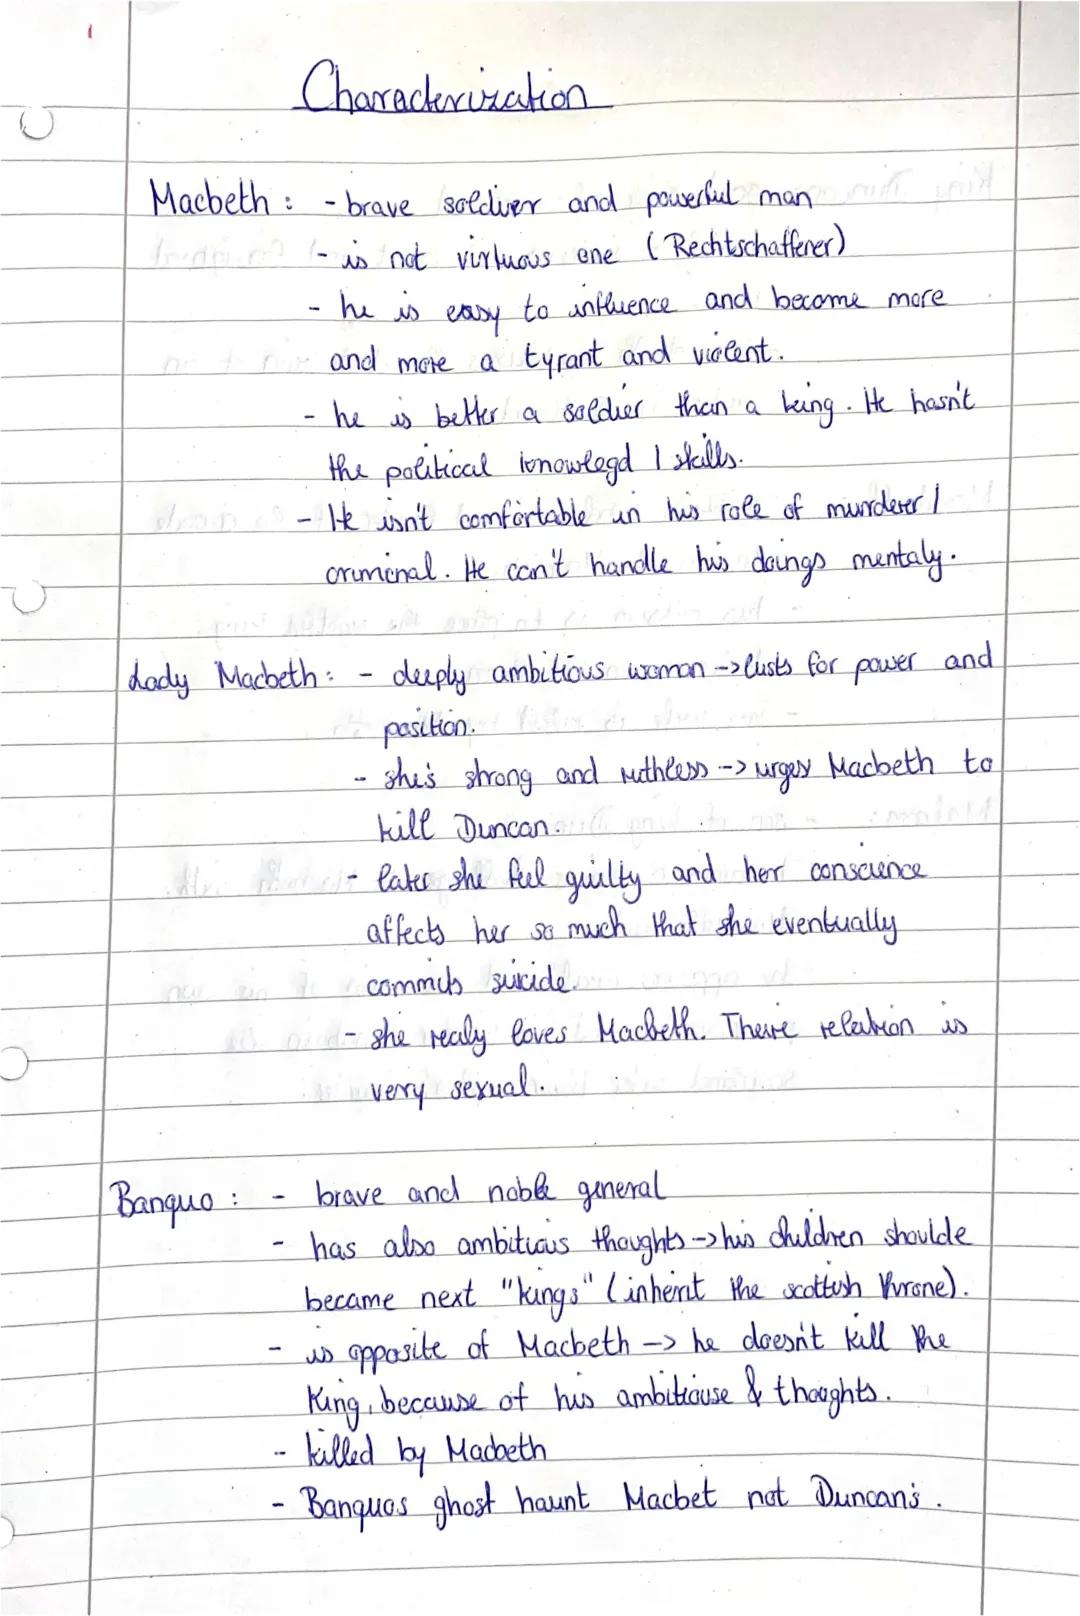 Characterization
Macbeth : - brave soldiver and powerful man
- is not virtuous one (Rechtschaffener)
- he is easy to influence and become more
and more a tyrant and violent.
- he is better a soldier than a king. He hasn't
the political knowlegd / skills.
- He isn't comfortable in his role of murderer /
criminal. He can't handle his doings mentaly.
Lady Macbeth : - deeply ambitious woman -> lusts for power and
position.
- she's strong and ruthless -> urges Macbeth to
kill Duncan.
- later she feel guilty and her conscience
affects her so much that she eventually
commits suicide.
- she realy loves Macbeth. Theire relation is
very sexual.
Banquo : - brave and noble general
- has also ambitious thoughts -> his children shoulde
became next "kings" (inherit the scottish throne).
- is opposite of Macbeth -> he doesn't kill the
King, because of his ambitiouse & thoughts.
- killed by Macbeth
- Banquos ghost haunt Macbet not Duncan's.